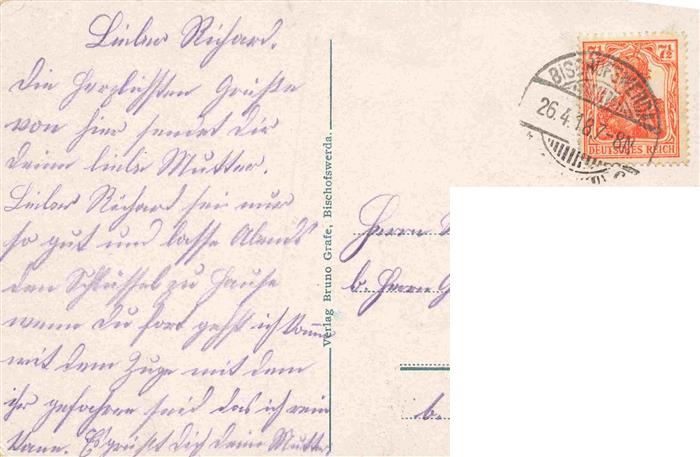 Lieber Richard.
Die Herzlichsten Grüße
von hier sendet dir
deine liebe Mutter.
Lieber Richard sei nur
so gut und lasse Abends
den Schlüssel zu Hause
wenn du fort gehst ich komme
mit dem Zuge mit dem
ihr gefahren seid das ich rein
kann. Es grüßt Dich deine Mutter
Verlag Bruno Grafe, Bischofswerda.
7½ 7½
DEUTSCHES REICH
BISCHOFSWERDA
26.4.18.7-8N.
Herrn
b. Herrn G
b.